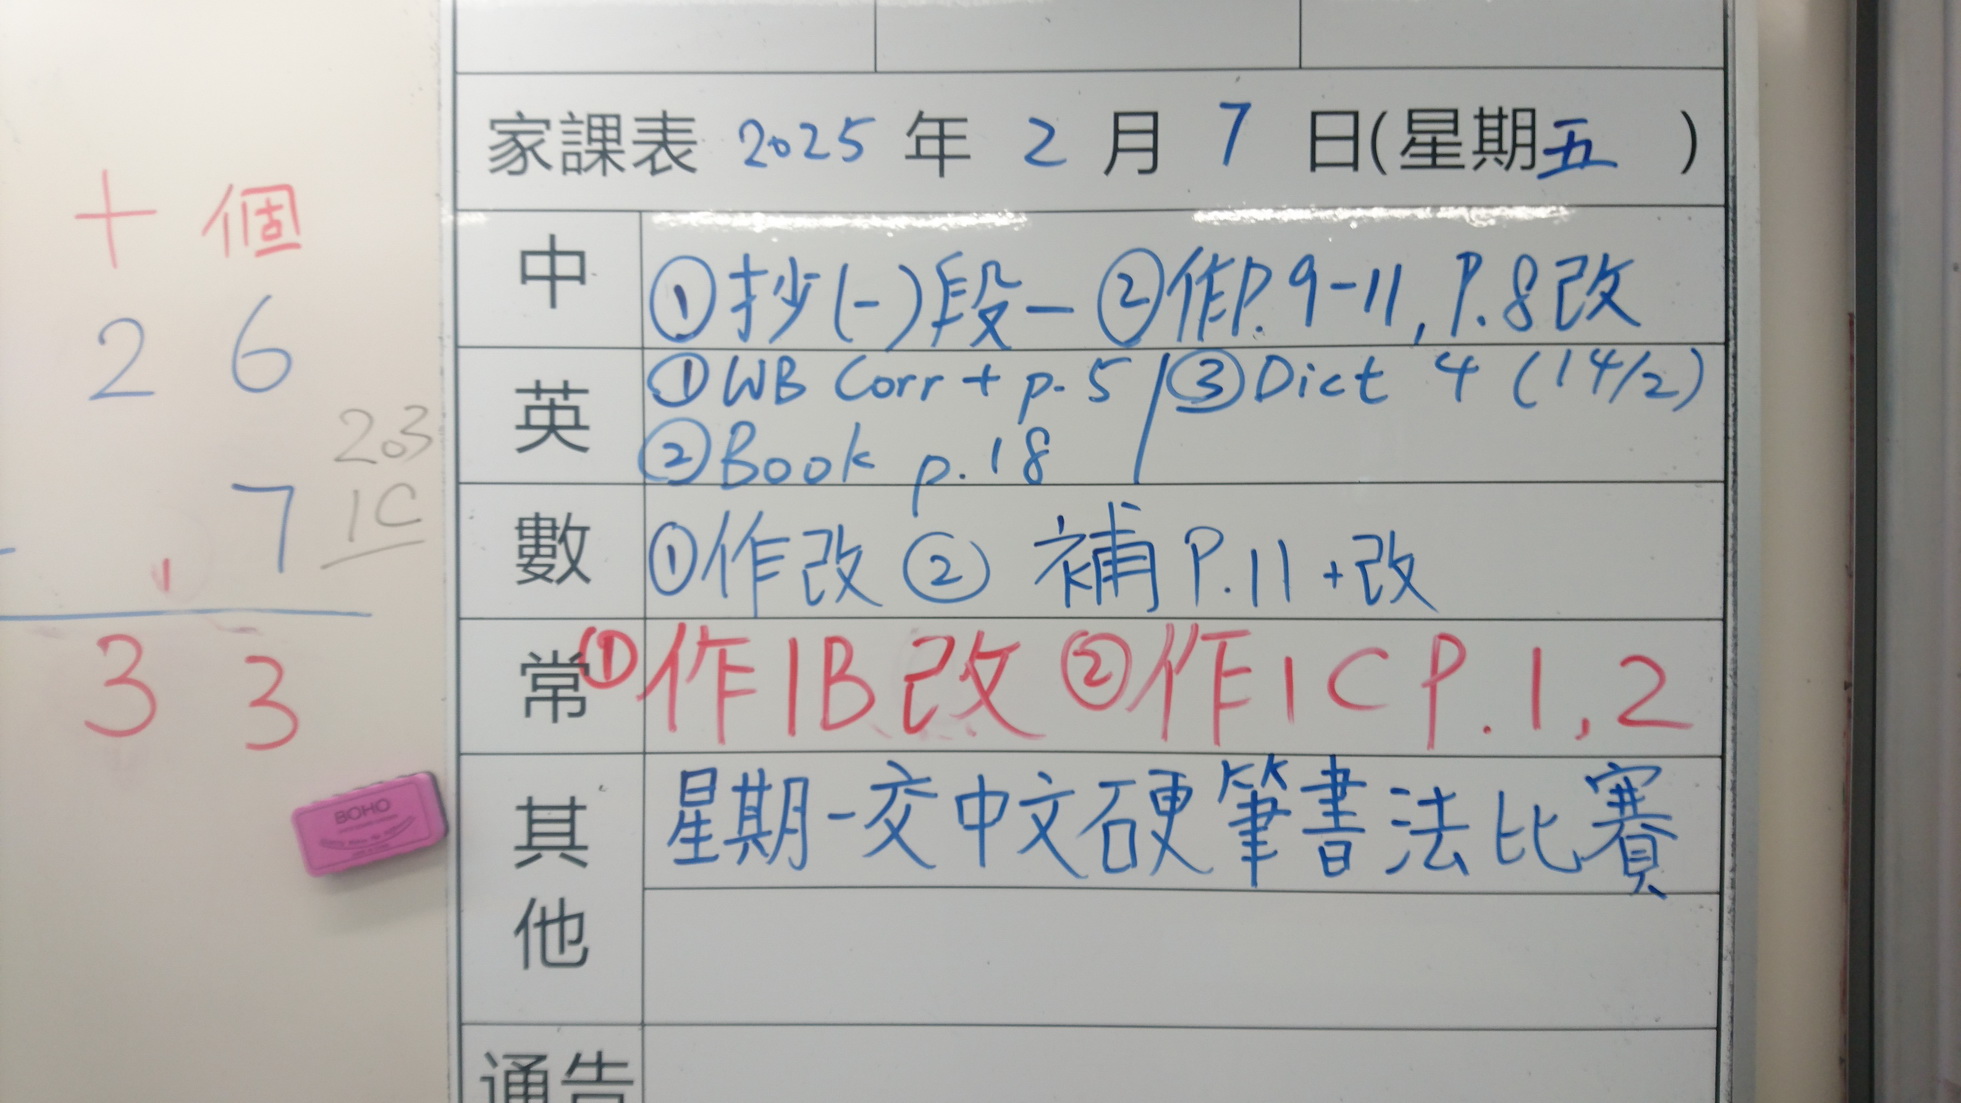 家課表 2025 年 2 月 7 日(星期五 )
中 ①抄(一)段一 ②作P.9-11, P.8改
英 ①WB Corr + p.5 / ③Dict 4 (14/2)
②Book p.18
數 ①作改 ② 補P.11+改
常 ①作1B改 ②作1C P.1,2
其他 星期一交中文硬筆書法比賽
通告
十 個
2 6
7
1
3 3
203
1C
BOHO